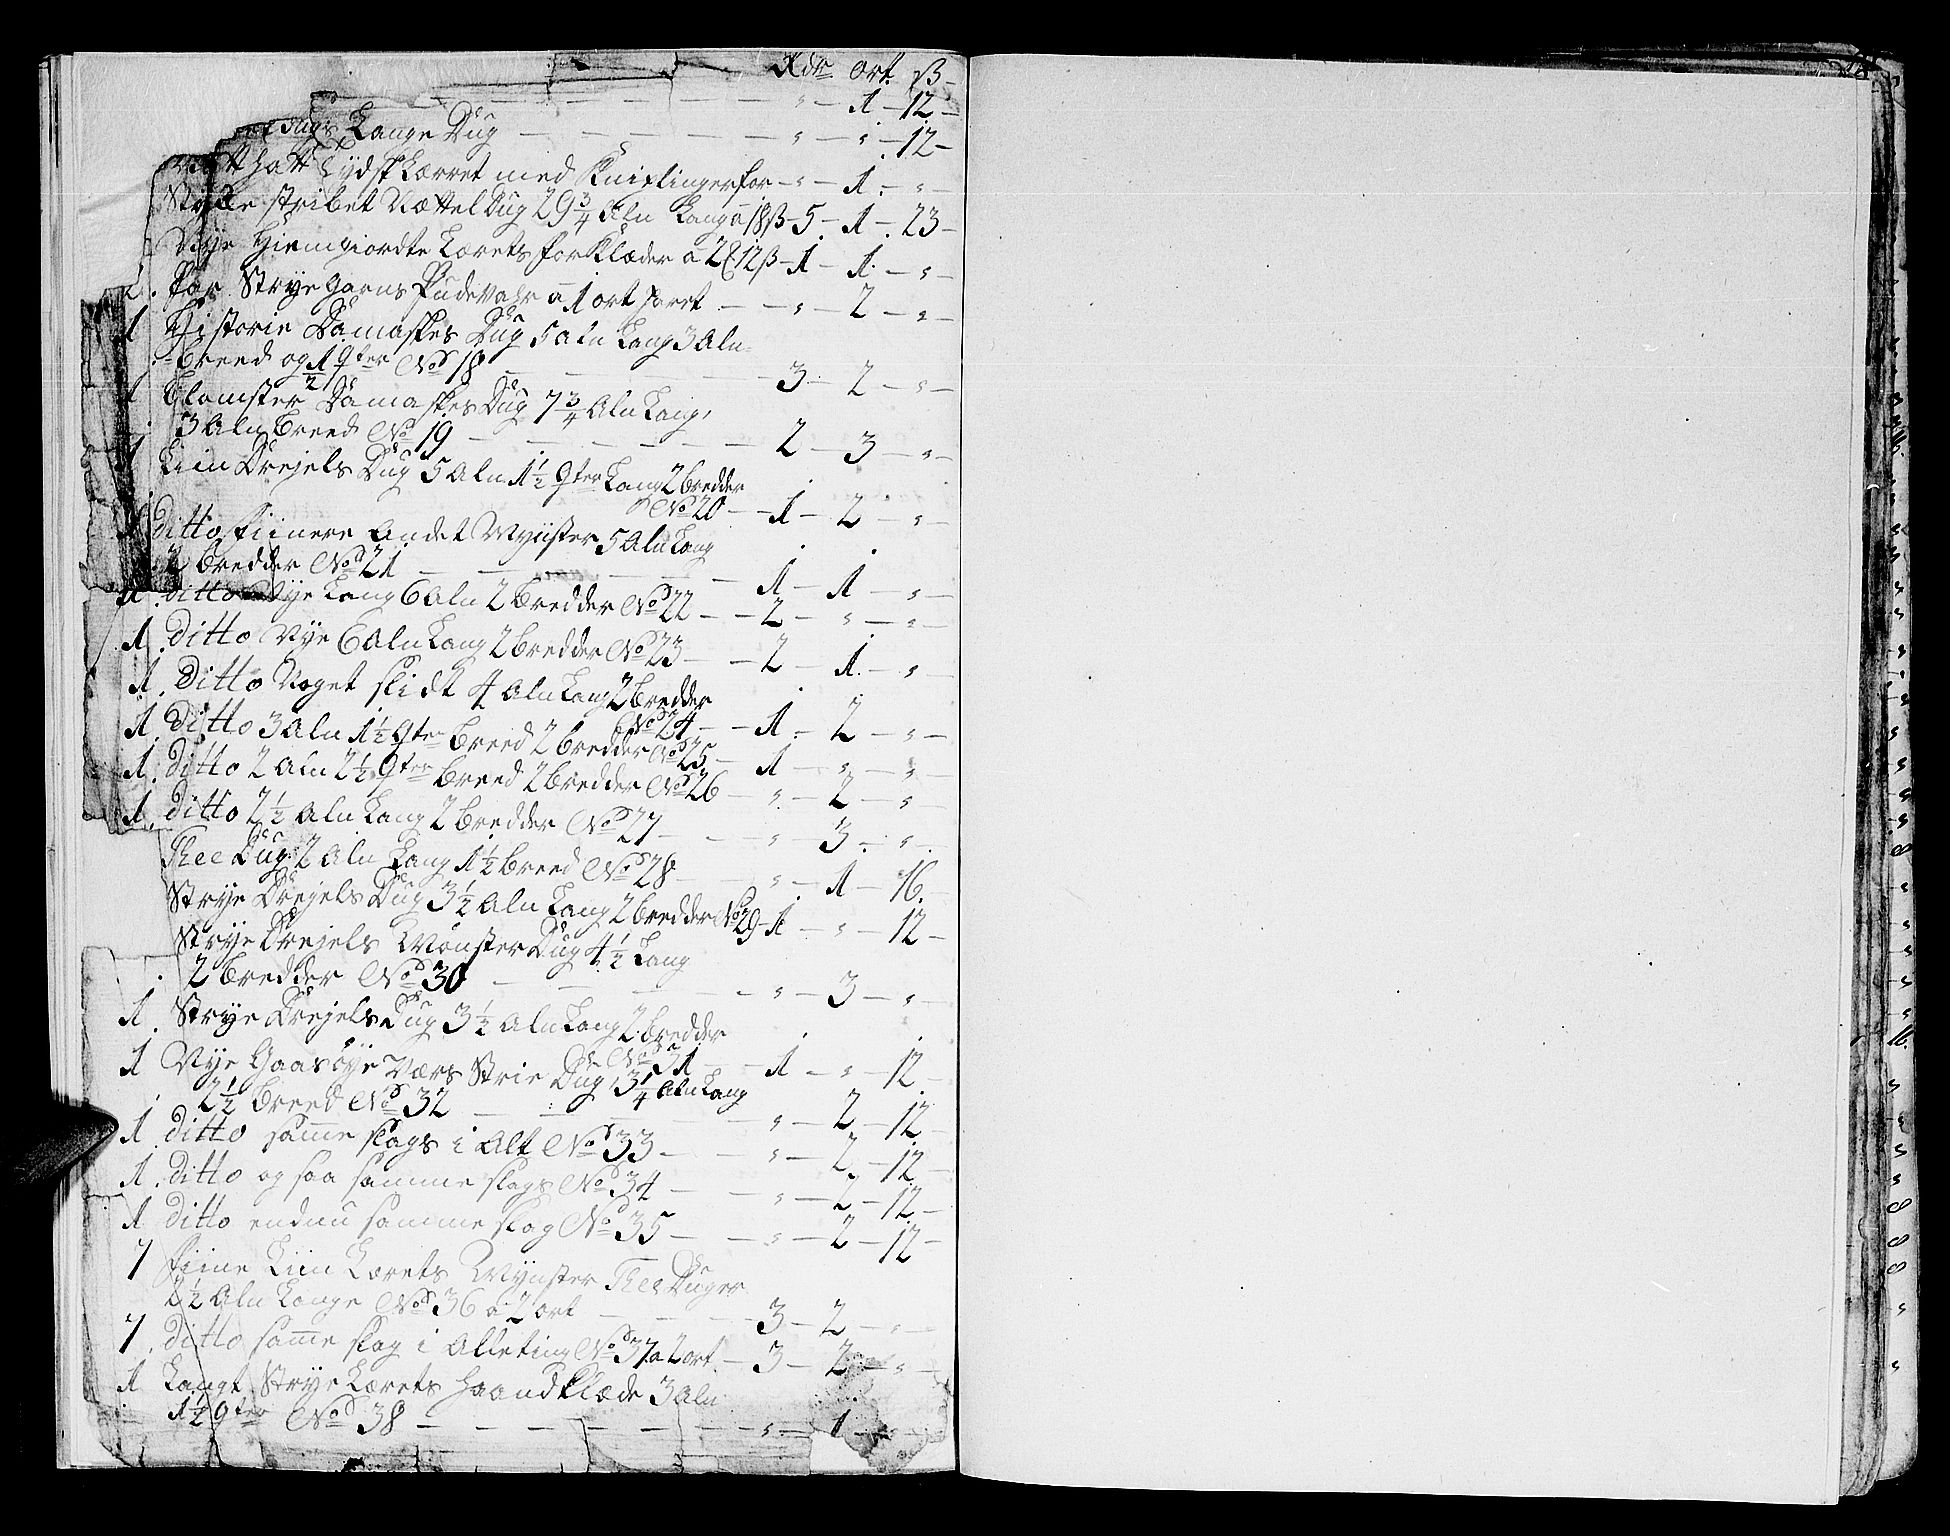 Rdr ort ß
— — — — — — " — 1 — 12 —
Lange Dug — — — — " — " — 12 —
Natt hatt Tydsk Lærret med Kniplinger for — " — 1 — " —
Stÿkke stribet Nættel Dug 29 3/4 Aln Lang a 18 ß — 5 — 1 — 23 —
Nÿe Hiemgiordte Lærrets forklæder a 2 ℓ 12 ß — 1 — 1 — " —
2. Par Strye Garns Pudevahr a 1 ort Parret — — " — 2 — " —
1 Historie Damaskes Dug 5 aln Lang 3 Aln
breed og 1/2 qter No 18 — — — 3 — 2 — " —
1 Blomster Damaskes Dug 7 3/4 Aln Lang,
3 Aln breed No 19 — — — — 2 — 3 — " —
1 Liin Drejels Dug 5 Aln 1 1/2 qter Lang 2 bredder
No 20 — 1 — 2 — " —
1 ditto fiinere Andet Mynster 5 Aln Lang
2 bredder No 21 — — — — 1 — 1 — " —
1. ditto Nye Lang 6 Aln 2 bredder No 22 — 2 — " — " —
1. ditto Nye 6 Aln Lang 2 bredder No 23 — 2 — 1 — " —
1. ditto Noget slidt 4 Aln Lang 2 bredder
No 24 — 1 — 2 — " —
1. ditto 3 Aln 1 1/2 qter breed 2 bredder No 25 — 1 — " — " —
1. ditto 2 Aln 2 1/2 qter breed 2 bredder No 26 — " — 2 — " —
1. ditto 2 1/2 Aln Lang 2 bredder No 27 — — " — 3 — " —
Thee Dug 2 Aln Lang 1 1/2 breed No 28 — — " — 1 — 16.
Strye Drejels Dug 3 1/2 Aln Lang 2 bredder No 29 — 1 — " — 12 —
Strye Drejels Mønster Dug 4 1/2 Lang
2 bredder No 30 — — — — " — 3 — " —
1. Strye Drejels Dug 3 1/2 Aln Lang 2 bredder
No 31 — 1 — " — 12 —
1 Nye Gaasøye Værs Strie Dug, 3 1/4 Aln Lang
2 1/2 breed No 32 — — — " — 2 — 12 —
1 ditto samme slags i Alt No 33 — — " — 2 — 12 —
1. ditto og saa samme slags No 34 — — " — 2 — 12 —
1 ditto endnu samme slag No 35 — — " — 2 — 12 —
7 fiine Liin Lærets Mynster Thee Duger
2 1/2 Aln Lange No 36 a 2 ort — — — 3 — 2 — " —
7. ditto samme slag i Alleting No 37 a 2 ort — 3 — 2 — " —
1 Langt Strye Lærets Haandklæde 3 Aln
1 1/2 qter No 38 — — — — — " — 1 — " —